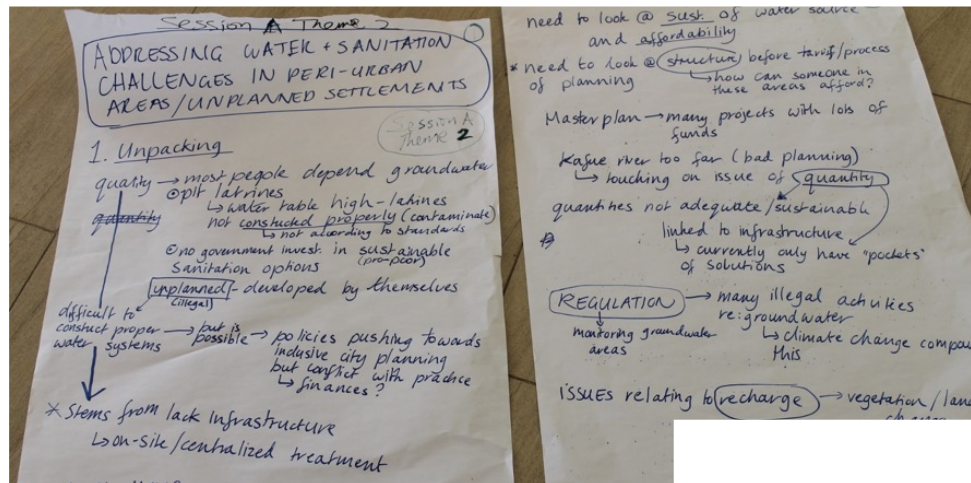 Session A Theme 2
1
ADDRESSING WATER + SANITATION
CHALLENGES IN PERI-URBAN
AREAS/UNPLANNED SETTLEMENTS
Session A
Theme 2
1. Unpacking
quality → most people depend groundwater
⊙ pit latrines
↳ water table high - latines
quantity
not constucted properly (contaminate)
↳ not acording to standards
⊙ no government invest. in sustainable
(pro-poor)
Sanitation options
unplanned - developed by themselves
(illegal)
difficult to
construct proper → but is possible → policies pushing towards
water systems
inclusive city planning
but conflict with practice
↳ finances?
* Stems from lack infrastructure
↳ on-site/centralized treatment
need to look @ sust. of water source
and affordability
* need to look @ structure before tariff/process
of planning
↳ how can someone in
these areas afford?
Master plan → many projects with lots of
funds
Kafue river too far (bad planning)
↳ touching on issue of quantity
quantities not adequate/sustainable
linked to infrastructure
↳ currently only have "pockets"
of solutions
REGULATION → many illegal activities
re: groundwater
↓
monitoring groundwater
areas
↳ climate change compou
this
ISSUES relating to recharge → vegetation/lan